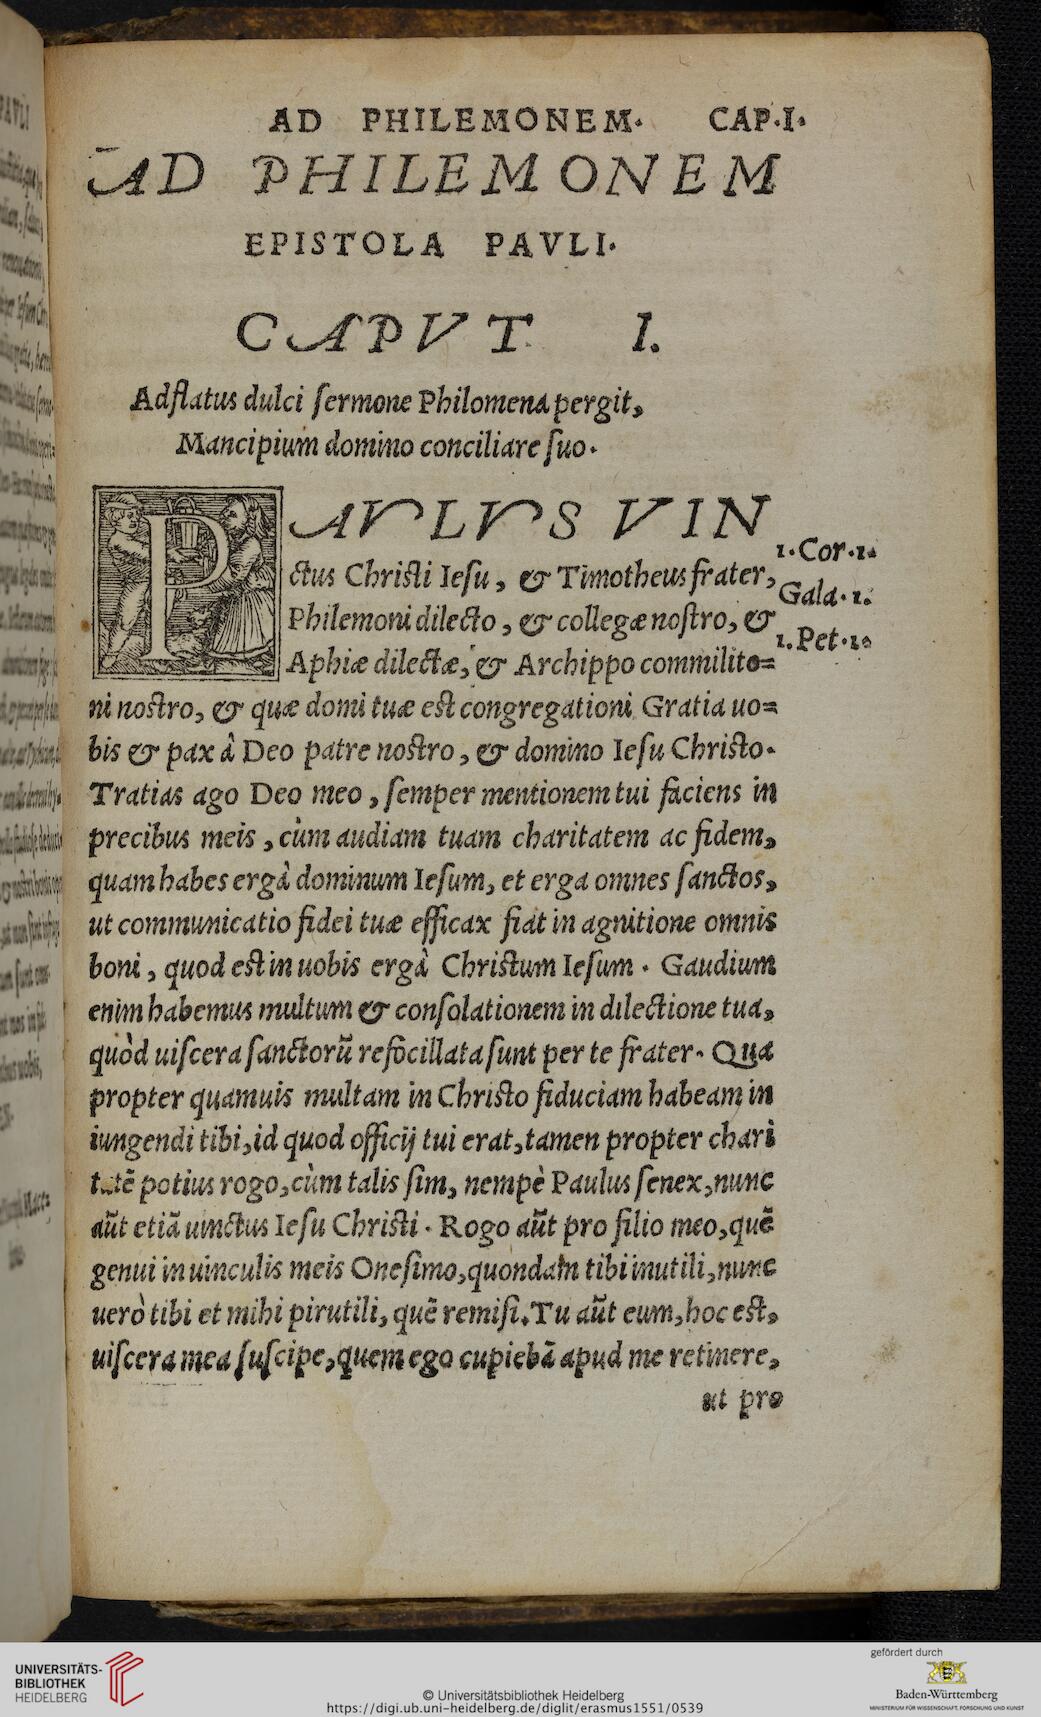 AD PHILEMONEM. CAP.I.
AD PHILEMONEM
EPISTOLA PAVLI.
CAPVT I.
Adflatus dulci ſermone Philomena pergit,
Mancipium domino conciliare ſuo.
PAVLVS VIN
ctus Chriſti Ieſu, & Timotheus frater,
Philemoni dilecto, & collegæ noſtro, &
Aphiæ dilectæ, & Archippo commilito=
ni noſtro, & quæ domi tuæ eſt congregationi Gratia uo=
bis & pax à Deo patre noſtro, & domino Ieſu Chriſto.
Tratias ago Deo meo, ſemper mentionem tui faciens in
precibus meis, cùm audiam tuam charitatem ac fidem,
quam habes ergà dominum Ieſum, et erga omnes ſanctos,
ut communicatio fidei tuæ efficax fiat in agnitione omnis
boni, quod eſt in uobis ergà Chriſtum Ieſum. Gaudium
enim habemus multum & conſolationem in dilectione tua,
quòd uiſcera ſanctorũ refocillata ſunt per te frater. Qua
propter quamuis multam in Chriſto fiduciam habeam in
iungendi tibi, id quod officij tui erat, tamen propter chari
tatẽ potius rogo, cùm talis ſim, nempè Paulus ſenex, nunc
aũt etiã uinctus Ieſu Chriſti. Rogo aũt pro filio meo, quẽ
genui in uinculis meis Oneſimo, quondam tibi inutili, nunc
uerò tibi et mihi pirutili, quẽ remiſi. Tu aũt eum, hoc eſt,
uiſcera mea ſuſcipe, quem ego cupiebã apud me retinere,
ut pro
1. Cor. 1.
Gala. 1.
1. Pet. 1.
UNIVERSITÄTS-
BIBLIOTHEK
HEIDELBERG
© Universitätsbibliothek Heidelberg
https://digi.ub.uni-heidelberg.de/diglit/erasmus1551/0539
gefördert durch
Baden-Württemberg
MINISTERIUM FÜR WISSENSCHAFT, FORSCHUNG UND KUNST